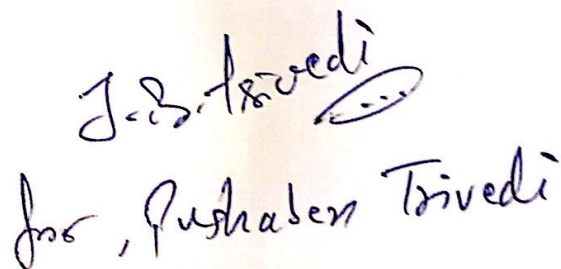 J.B. Trivedi
for, Pushaben Trivedi